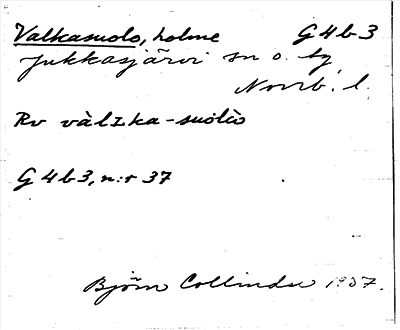 Valkasuolo, holme G4b3
Jukkasjärvi sn o. tg
Norrb. l.
Rv vàlɪka-suolo
G4b3, n:r 37
Björn Collinder 1937.